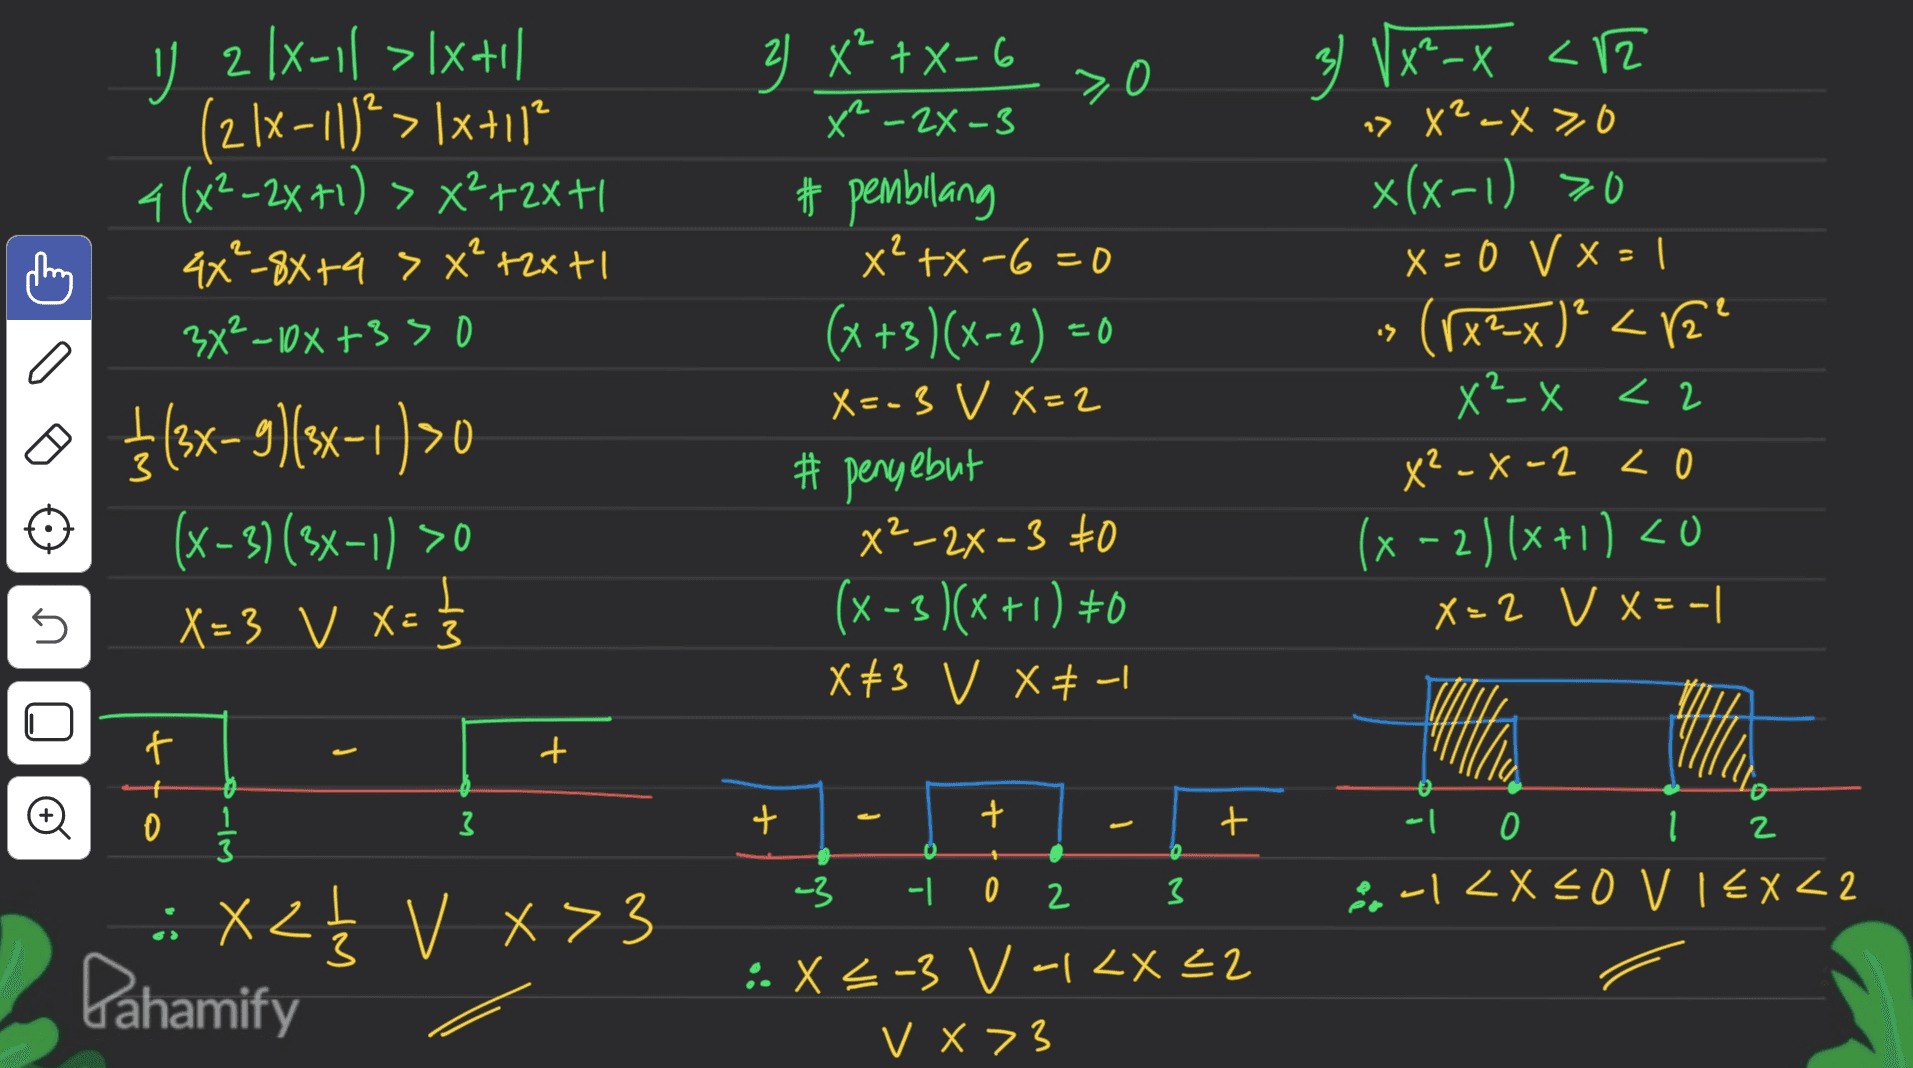 1) 2|x-1| > |x+1|
(2|x-1|)² > |x+1|²
4(x²-2x+1) > x²+2x+1
4x²-8x+4 > x²+2x+1
3x²-10x+3 > 0
1/3(3x-9)(3x-1) > 0
(x-3)(3x-1) > 0
x=3 V x=1/3
+ - +
0 1/3 3
∴ x < 1/3 V x > 3
2) (x²+x-6)/(x²-2x-3) ⩾ 0
# pembilang
x²+x-6 = 0
(x+3)(x-2) = 0
x=-3 V x=2
# penyebut
x²-2x-3 ≠ 0
(x-3)(x+1) ≠ 0
x≠3 V x≠-1
+ - + - +
-3 -1 0 2 3
∴ x ≤ -3 V -1 < x ≤ 2
V x > 3
3) √(x²-x) < √2
=> x²-x ⩾ 0
x(x-1) ⩾ 0
x=0 V x=1
=> (√(x²-x))² < √2²
x²-x < 2
x²-x-2 < 0
(x-2)(x+1) < 0
x=2 V x=-1
-1 0 1 2
∴ -1 < x ≤ 0 V 1 ≤ x < 2
Pahamify